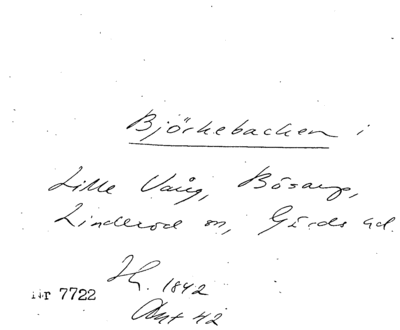 Björkebacken i
Lille Vång, Bösarp,
Linderöd sn, Gärds hd.
1842
Nr 7722
42